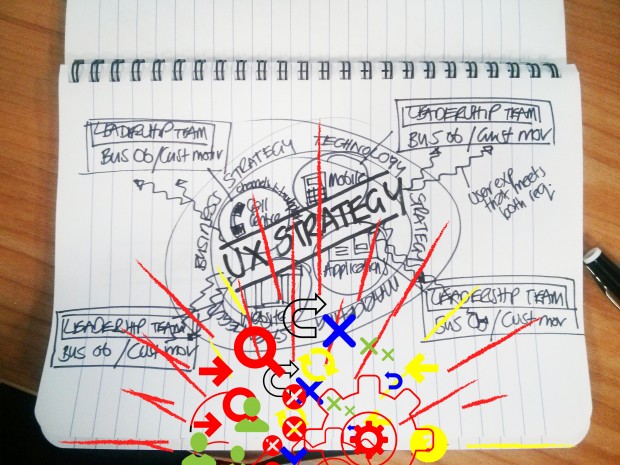 LEADERSHIP TEAM
BUS OB/Cust mov
LEADERSHIP TEAM
BUS OB/Cust mov
STRATEGY TECHNOLOGY
Mobile
Call
Centre
UX STRATEGY
STRATEGY
BUSINESS
user exp
that meets
both req.
Application
Website
LEADERSHIP TEAM
BUS OB/Cust mov
LEADERSHIP TEAM
BUS OB/Cust mov